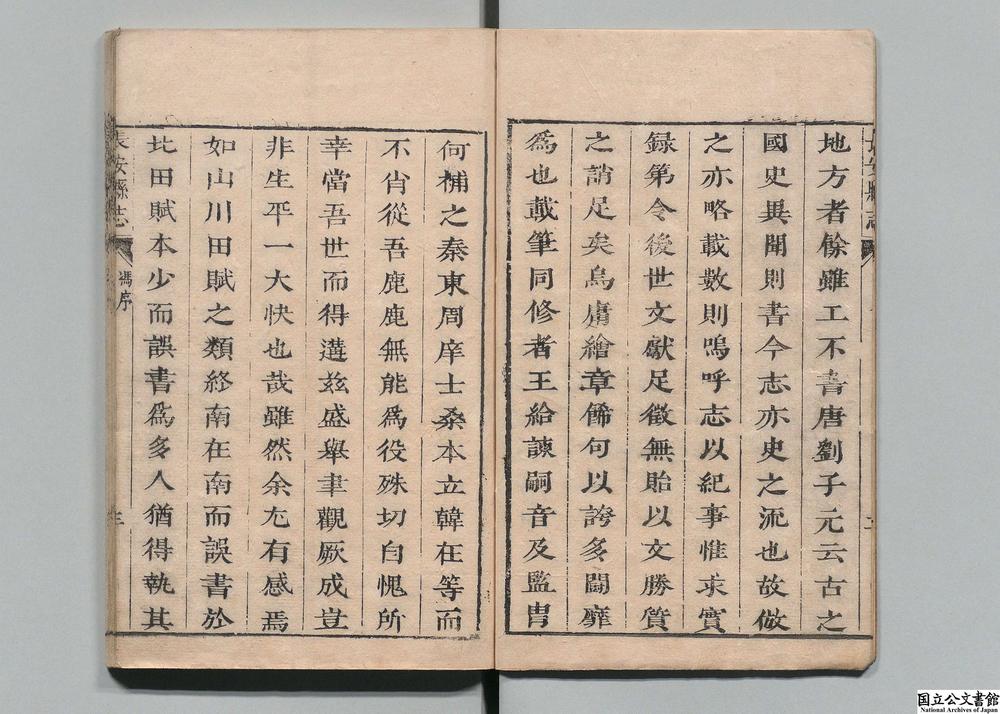 地方者餘雖工不書唐劉子元云古之
國史異聞則書今志亦史之流也故倣
之亦略載數則嗚呼志以紀事惟求實
録第令後世文獻足徵無貽以文勝質
之誚足矣烏庸繪章飾句以誇多鬪靡
爲也載筆同修者王給諫嗣音及監胄
何補之秦東周庠士桑本立韓在等而
不肖從吾鹿鹿無能爲役殊切自愧所
幸當吾世而得遘兹盛舉聿觀厥成豈
非生平一大快也哉雖然余尢有感焉
如山川田賦之類終南在南而誤書於
北田賦本少而誤書爲多人猶得執其
長安縣志
馮序
三
国立公文書館
National Archives of Japan